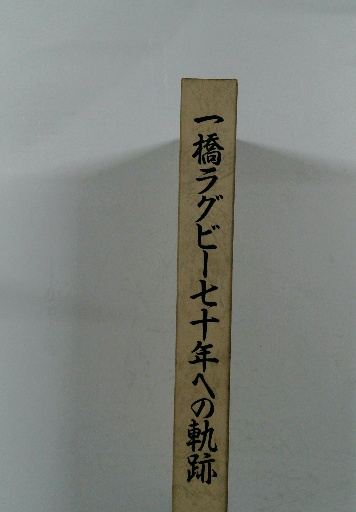 一橋ラグビー七十年への軌跡